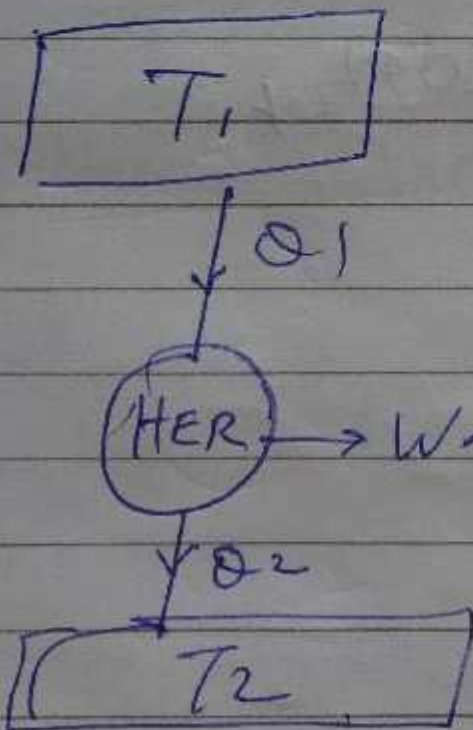 T1
Q1
HER → W
Q2
T2